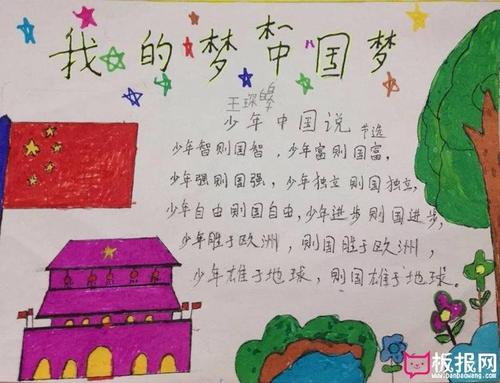 我的梦 中国梦
王琛皞
少年中国说 节选
少年智则国智，少年富则国富，
少年强则国强，少年独立则国独立，
少年自由则国自由，少年进步则国进步，
少年胜于欧洲，则国胜于欧洲，
少年雄于地球，则国雄于地球。
板报网
www.banbaowang.com